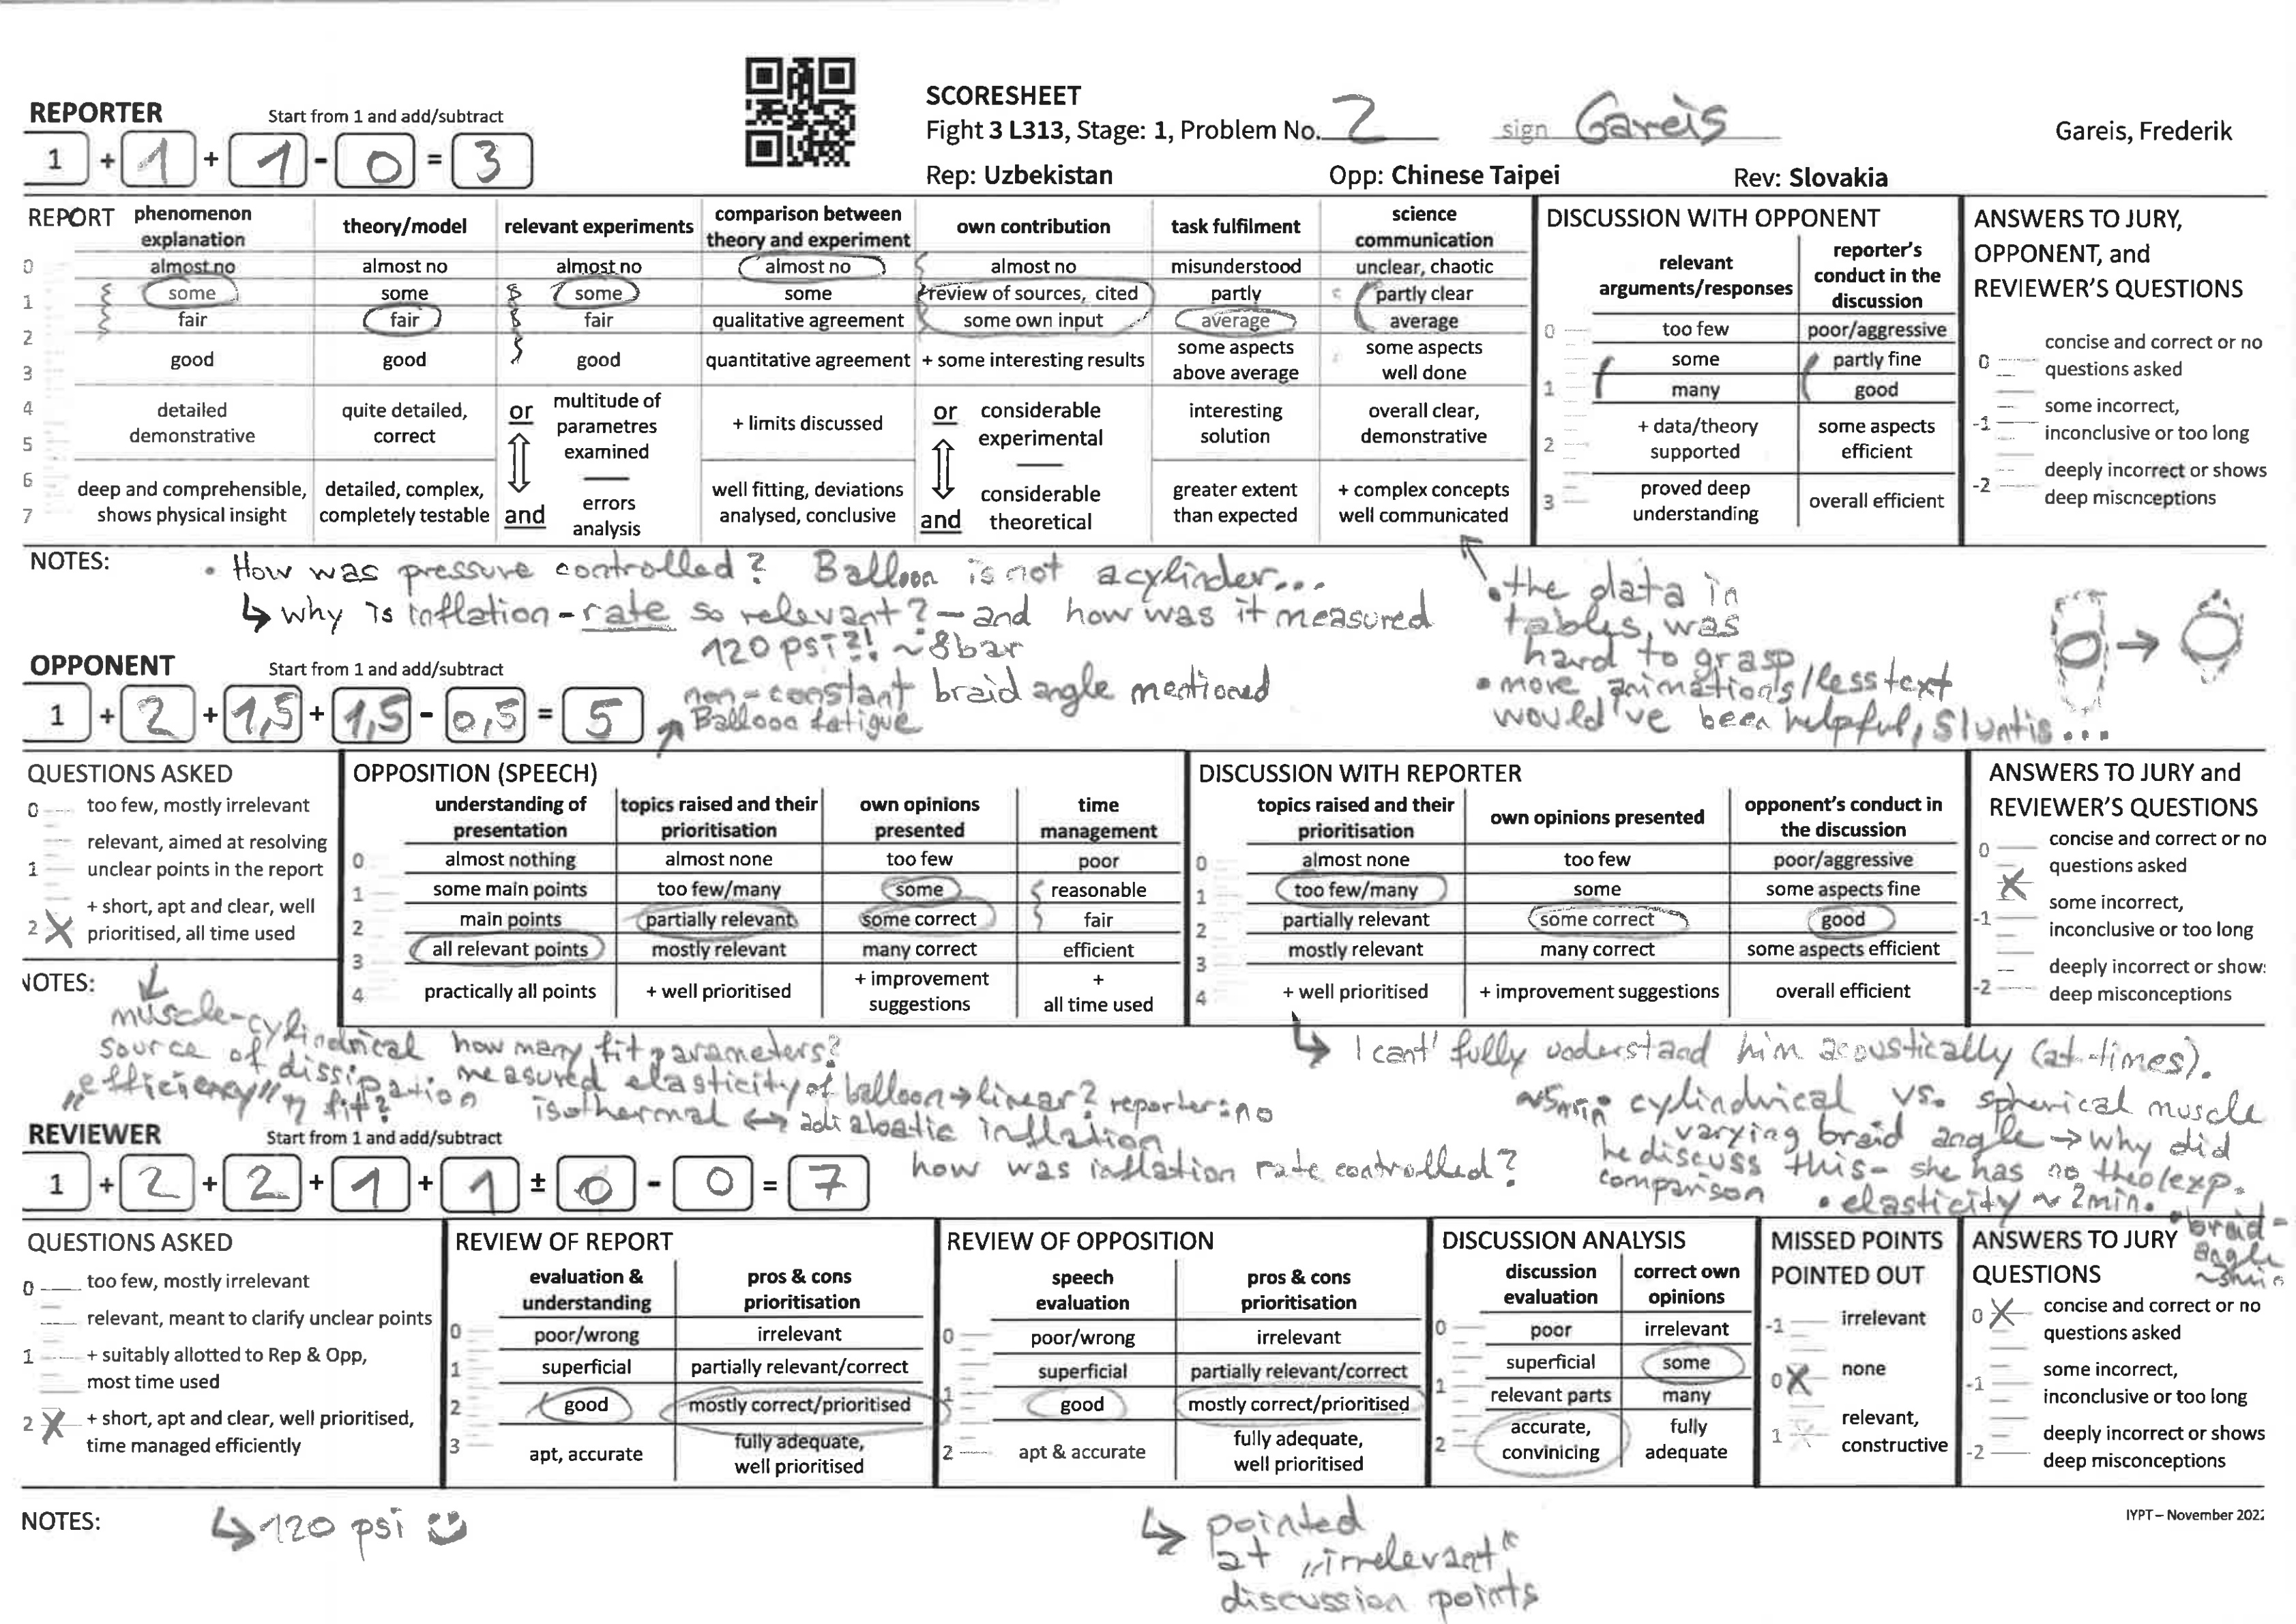 SCORESHEET
Fight 3 L313, Stage: 1, Problem No. 2 sign Gareis Gareis, Frederik
Rep: Uzbekistan Opp: Chinese Taipei Rev: Slovakia
REPORTER Start from 1 and add/subtract
1 + 1 + 1 - 0 = 3
REPORT
phenomenon explanation
theory/model
relevant experiments
comparison between theory and experiment
own contribution
task fulfilment
science communication
0 almost no almost no almost no almost no almost no misunderstood unclear, chaotic
1 some some some some review of sources, cited partly partly clear
fair fair fair qualitative agreement some own input average average
2
3 good good good quantitative agreement + some interesting results some aspects above average some aspects well done
4 detailed demonstrative quite detailed, correct or multitude of parametres examined + limits discussed or considerable experimental interesting solution overall clear, demonstrative
5
6 deep and comprehensible, shows physical insight detailed, complex, completely testable and errors analysis well fitting, deviations analysed, conclusive and considerable theoretical greater extent than expected + complex concepts well communicated
7
DISCUSSION WITH OPPONENT
relevant arguments/responses
reporter's conduct in the discussion
0 too few poor/aggressive
some partly fine
1 many good
2 + data/theory supported some aspects efficient
3 proved deep understanding overall efficient
ANSWERS TO JURY, OPPONENT, and REVIEWER'S QUESTIONS
0 concise and correct or no questions asked
-1 some incorrect, inconclusive or too long
-2 deeply incorrect or shows deep miscnceptions
NOTES:
• How was pressure controlled? Balloon is not a cylinder...
↳ why is inflation-rate so relevant? - and how was it measured
120 psi?! ~8bar
non-constant braid angle mentioned
Balloon fatigue
• the data in
tables, was
hard to grasp
• more animations/less text
would've been helpful,
OPPONENT Start from 1 and add/subtract
1 + 2 + 1,5 + 1,5 - 0,5 = 5
QUESTIONS ASKED
0 too few, mostly irrelevant
1 relevant, aimed at resolving unclear points in the report
2 + short, apt and clear, well prioritised, all time used
OPPOSITION (SPEECH)
understanding of presentation
topics raised and their prioritisation
own opinions presented
time management
0 almost nothing almost none too few poor
1 some main points too few/many some reasonable
2 main points partially relevant some correct fair
3 all relevant points mostly relevant many correct efficient
4 practically all points + well prioritised + improvement suggestions + all time used
DISCUSSION WITH REPORTER
topics raised and their prioritisation
own opinions presented
opponent's conduct in the discussion
0 almost none too few poor/aggressive
1 too few/many some some aspects fine
2 partially relevant some correct good
3 mostly relevant many correct some aspects efficient
4 + well prioritised + improvement suggestions overall efficient
ANSWERS TO JURY and REVIEWER'S QUESTIONS
0 concise and correct or no questions asked
-1 some incorrect, inconclusive or too long
-2 deeply incorrect or show: deep misconceptions
NOTES:
muscle-cylindrical how many fit parameters?
source of dissipation measured elasticity of balloon → linear? reporter: no
"efficiency" fit? isothermal ↔ adiabatic inflation
how was inflation rate controlled?
↳ I cant' fully understand him acoustically (at times).
~5min: cylindrical vs. spherical muscle
varying braid angle → why did
he discuss this - she has no theo/exp.
comparison • elasticity ~ 2min. • braid-
angle
REVIEWER Start from 1 and add/subtract
1 + 2 + 2 + 1 + 1 ± 0 - 0 = 7
QUESTIONS ASKED
0 too few, mostly irrelevant
relevant, meant to clarify unclear points
1 + suitably allotted to Rep & Opp, most time used
2 + short, apt and clear, well prioritised, time managed efficiently
REVIEW OF REPORT
evaluation & understanding
pros & cons prioritisation
0 poor/wrong irrelevant
1 superficial partially relevant/correct
2 good mostly correct/prioritised
3 apt, accurate fully adequate, well prioritised
REVIEW OF OPPOSITION
speech evaluation
pros & cons prioritisation
0 poor/wrong irrelevant
superficial partially relevant/correct
1 good mostly correct/prioritised
2 apt & accurate fully adequate, well prioritised
DISCUSSION ANALYSIS
discussion evaluation
correct own opinions
0 poor irrelevant
superficial some
1 relevant parts many
2 accurate, convinicing fully adequate
MISSED POINTS POINTED OUT
-1 irrelevant
0 none
1 relevant, constructive
ANSWERS TO JURY QUESTIONS
0 concise and correct or no questions asked
-1 some incorrect, inconclusive or too long
-2 deeply incorrect or shows deep misconceptions
NOTES:
↳ 120 psi
↳ pointed
at "irrelevant"
discussion points
IYPT – November 2022